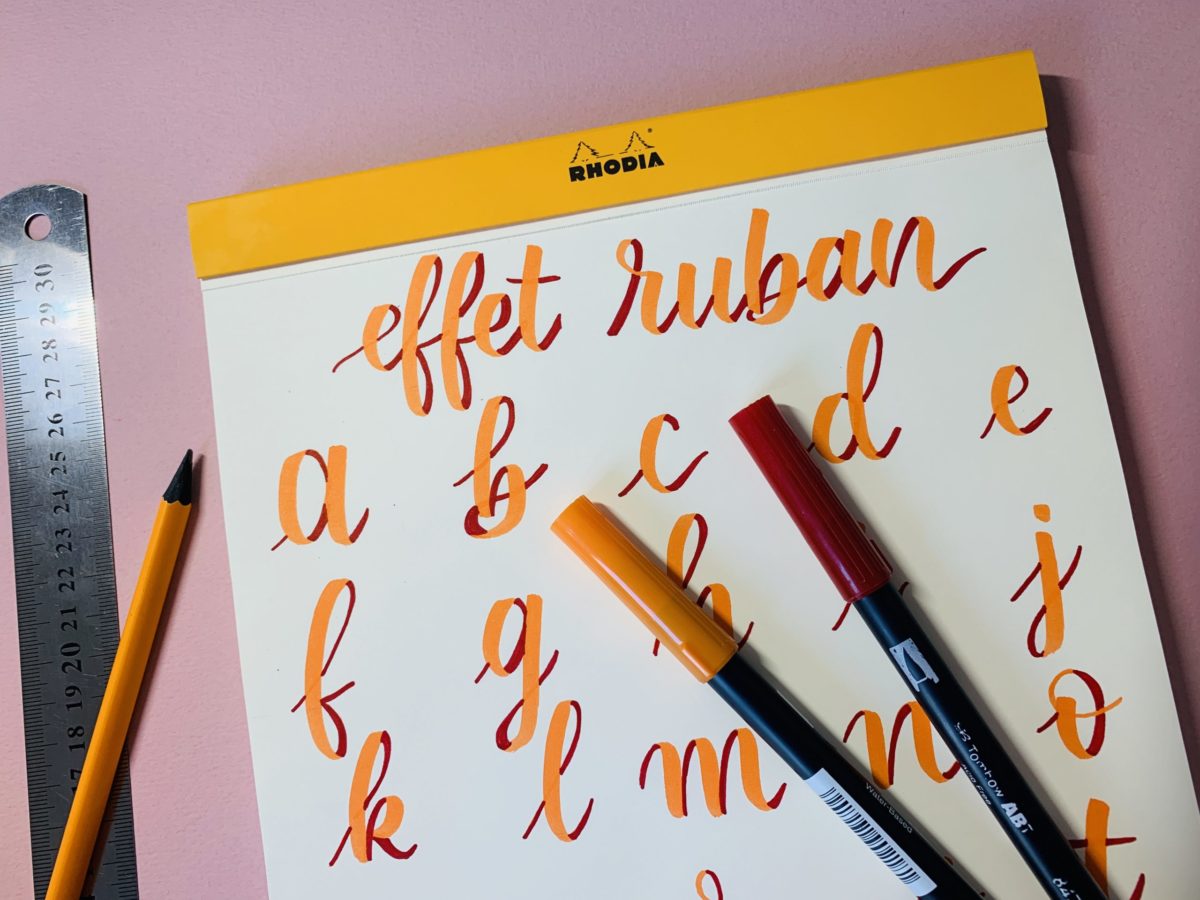 RHODIA
effet ruban
a b c d e
f g h j
k l m n o
t
30 29 28 27 26 25 24 23 22 21 20 19 18 17
Water-Based
Tombow ABT